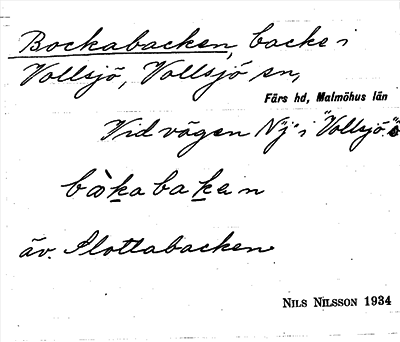 Bockabacken, backe i
Vollsjö, Vollsjö sn,
Färs hd, Malmöhus län
Vid vägen N j i "Vollsjö."
bòkabakan
äv. Slottabacken
NILS NILSSON 1934